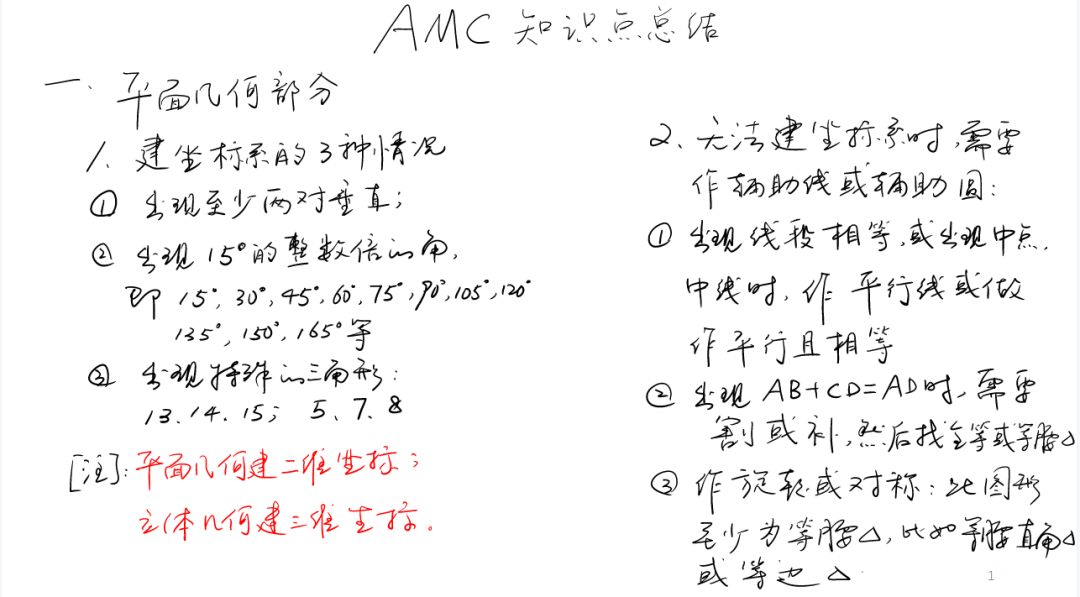 AMC 知识点总结
一、平面几何部分
1、建坐标系的3种情况
① 出现至少两对垂直；
② 出现15°的整数倍的角，
即 15°, 30°, 45°, 60°, 75°, 90°, 105°, 120°
135°, 150°, 165°等
③ 出现特殊的三角形：
13、14、15； 5、7、8
[注]：平面几何建二维坐标；
立体几何建三维坐标。
2、无法建坐标系时，需要
作辅助线或辅助圆：
① 出现线段相等，或出现中点，
中线时，作平行线或做
作平行且相等
② 出现 AB+CD=AD时，需要
割或补，然后找全等或等腰△
③ 作旋转或对称：此图形
至少为等腰△，比如等腰直角△
或等边△
1